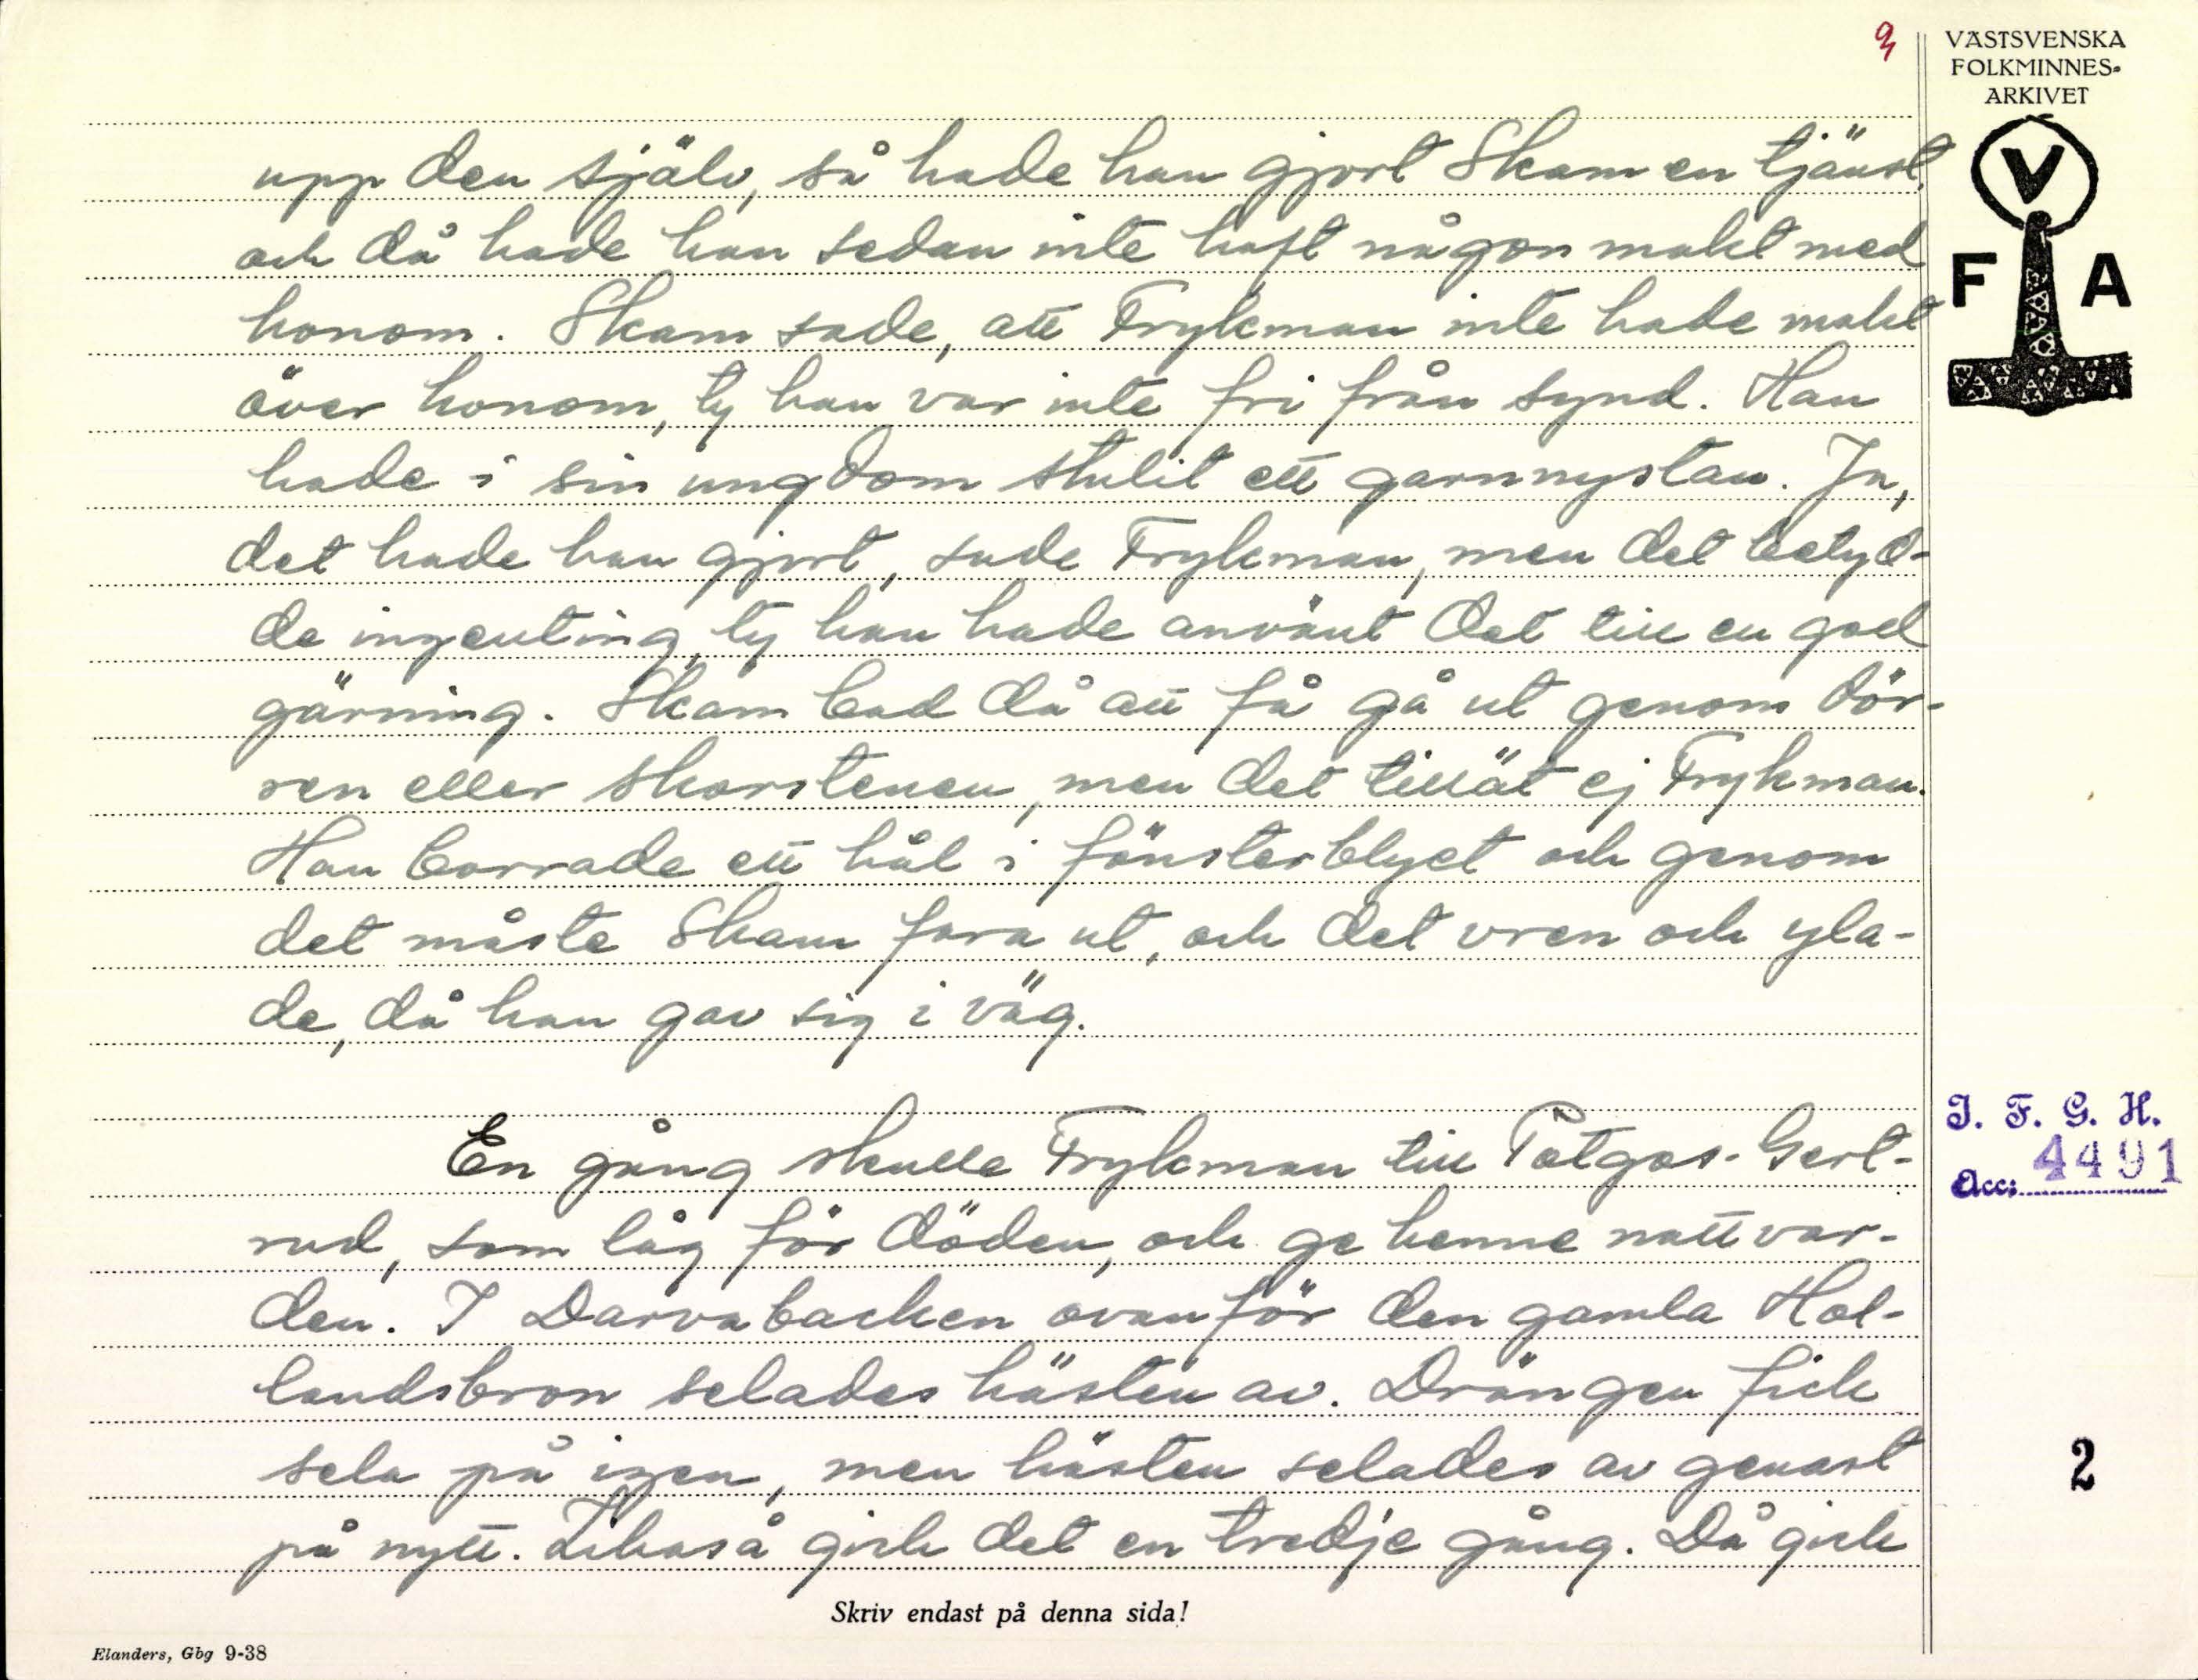 9
VÄSTSVENSKA
FOLKMINNES-
ARKIVET
V
F A
upp den själv, så hade han gjort Skam en tjänst,
och då hade han sedan inte haft någon makt med
honom. Skam sade, att Frykman inte hade makt
över honom, ty han var inte fri från synd. Han
hade i sin ungdom stulit ett garnnystan. Ja,
det hade han gjort, sade Frykman, men det betyd-
de ingenting, ty han hade använt det till en god
gärning. Skam bad då att få gå ut genom dör-
ren eller skorstenen, men det tillät ej Frykman.
Han borrade ett hål i fönsterblyet och genom
det måste Skam fara ut, och det vren och yla-
de, då han gav sig i väg.
En gång skulle Frykman till Påtgas-Gert-
rud, som låg för döden, och ge henne nattvar-
den. I Darvabacken ovanför den gamla Hol-
landsbron selades hästen av. Drängen fick
sela på igen, men hästen selades av genast
på nytt. Likaså gick det en tredje gång. Då gick
I. F. G. H.
Acc: 4491
2
Skriv endast på denna sida!
Elanders, Gbg 9-38